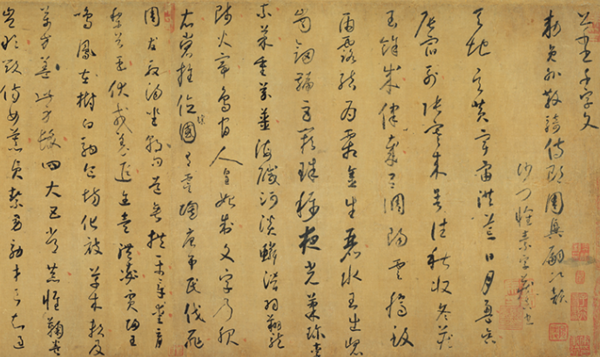 千字文
敕員外散騎侍郎周興嗣次韻
沙門懷素字藏真書
天地玄黃宇宙洪荒日月盈昃
辰宿列張寒來暑往秋收冬藏
閏餘成歲律呂調陽雲騰致
雨露結為霜金生麗水玉出崑
崗劍號巨闕珠稱夜光菓珍李
柰菜重芥薑海鹹河淡鱗潛羽翔龍
師火帝鳥官人皇始制文字乃服
衣裳推位讓國有虞陶唐弔民伐罪
周發殷湯坐朝問道垂拱平章愛育
黎首臣伏戎羌遐邇壹體率賓歸王
鳴鳳在樹白駒食場化被草木賴及
萬方蓋此身髮四大五常恭惟鞠養
豈敢毀傷女慕貞潔男效才良知過